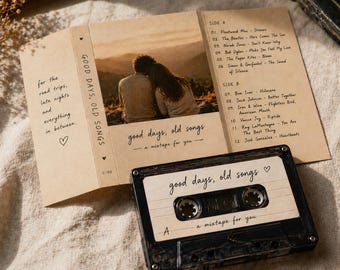 for the
road trips,
late nights
and
everything
in between.
GOOD DAYS, OLD SONGS
C-90
good days, old songs
a mixtape for you
SIDE A
01. Fleetwood Mac - Dreams
02. The Beatles - Here Comes The Sun
03. Norah Jones - Don't Know Why
04. Bob Dylan - Make You Feel My Love
05. The Paper Kites - Bloom
06. Simon & Garfunkel - The Sound
of Silence
SIDE B
07. Bon Iver - Holocene
08. Jack Johnson - Better Together
09. Iron & Wine - Flightless Bird,
American Mouth
10. Vance Joy - Riptide
11. Ray LaMontagne - You Are
The Best Thing
12. José González - Heartbeats
good days, old songs
A
a mixtape for you